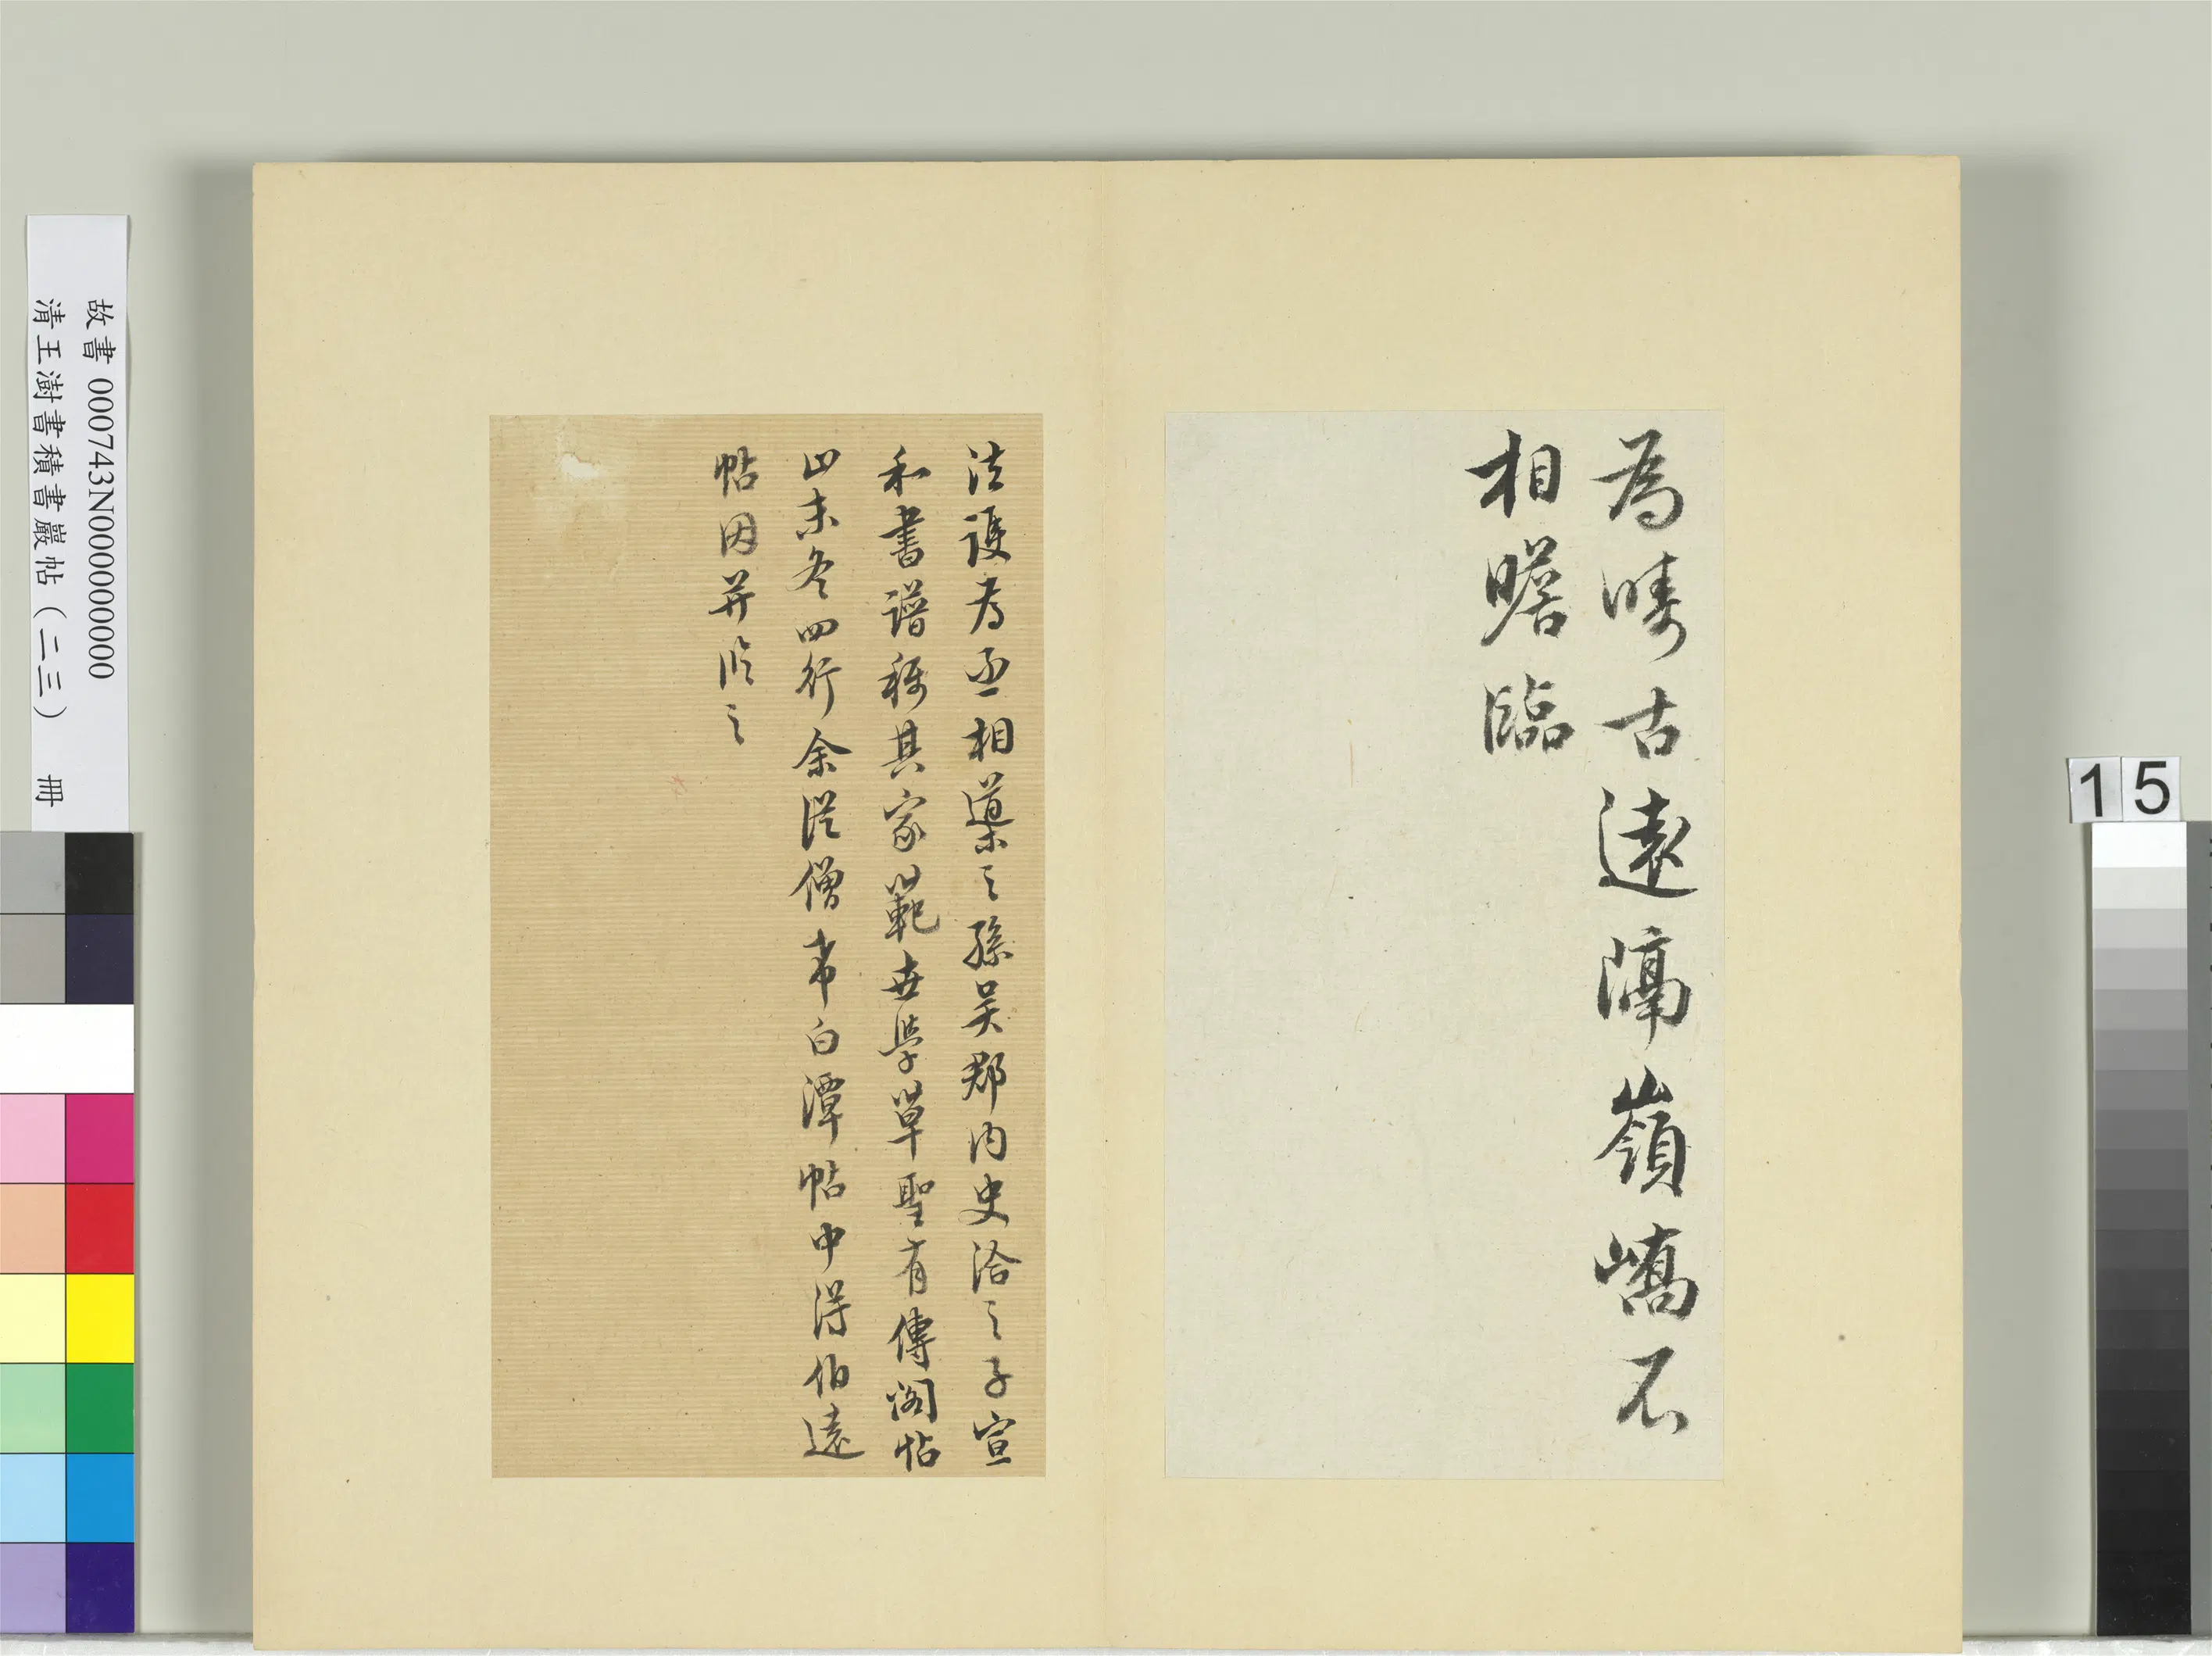 為疇古遠隔嶺嶠不
相瞻臨
法護為丞相導之孫吳郡內史洽之子宣
和書譜稱其家範世學草聖有傳閣帖
止末冬四行余從僧希白潭帖中得伯遠
帖因并臨之
故書 000743N000000000
清王澍書積書巖帖(二三) 冊
15